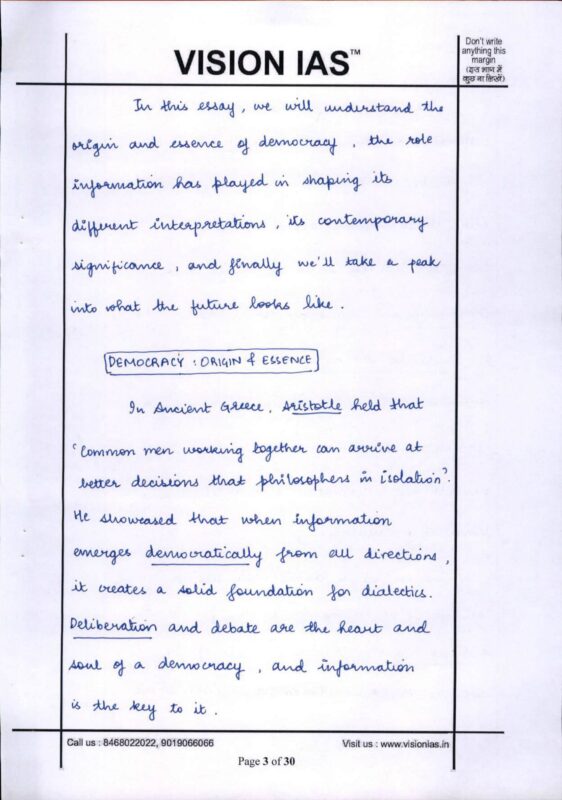 VISION IAS™
Don't write
anything this
margin
(इस भाग में
कुछ ना लिखें)
In this essay, we will understand the
origin and essence of democracy, the role
information has played in shaping its
different interpretations, its contemporary
significance, and finally we'll take a peak
into what the future looks like.
DEMOCRACY : ORIGIN & ESSENCE
In Ancient Greece, Aristotle held that
'Common men working together can arrive at
better decisions that philosophers in isolation'.
He showcased that when information
emerges democratically from all directions,
it creates a solid foundation for dialectics.
Deliberation and debate are the heart and
soul of a democracy, and information
is the key to it.
Call us : 8468022022, 9019066066
Visit us : www.visionias.in
Page 3 of 30